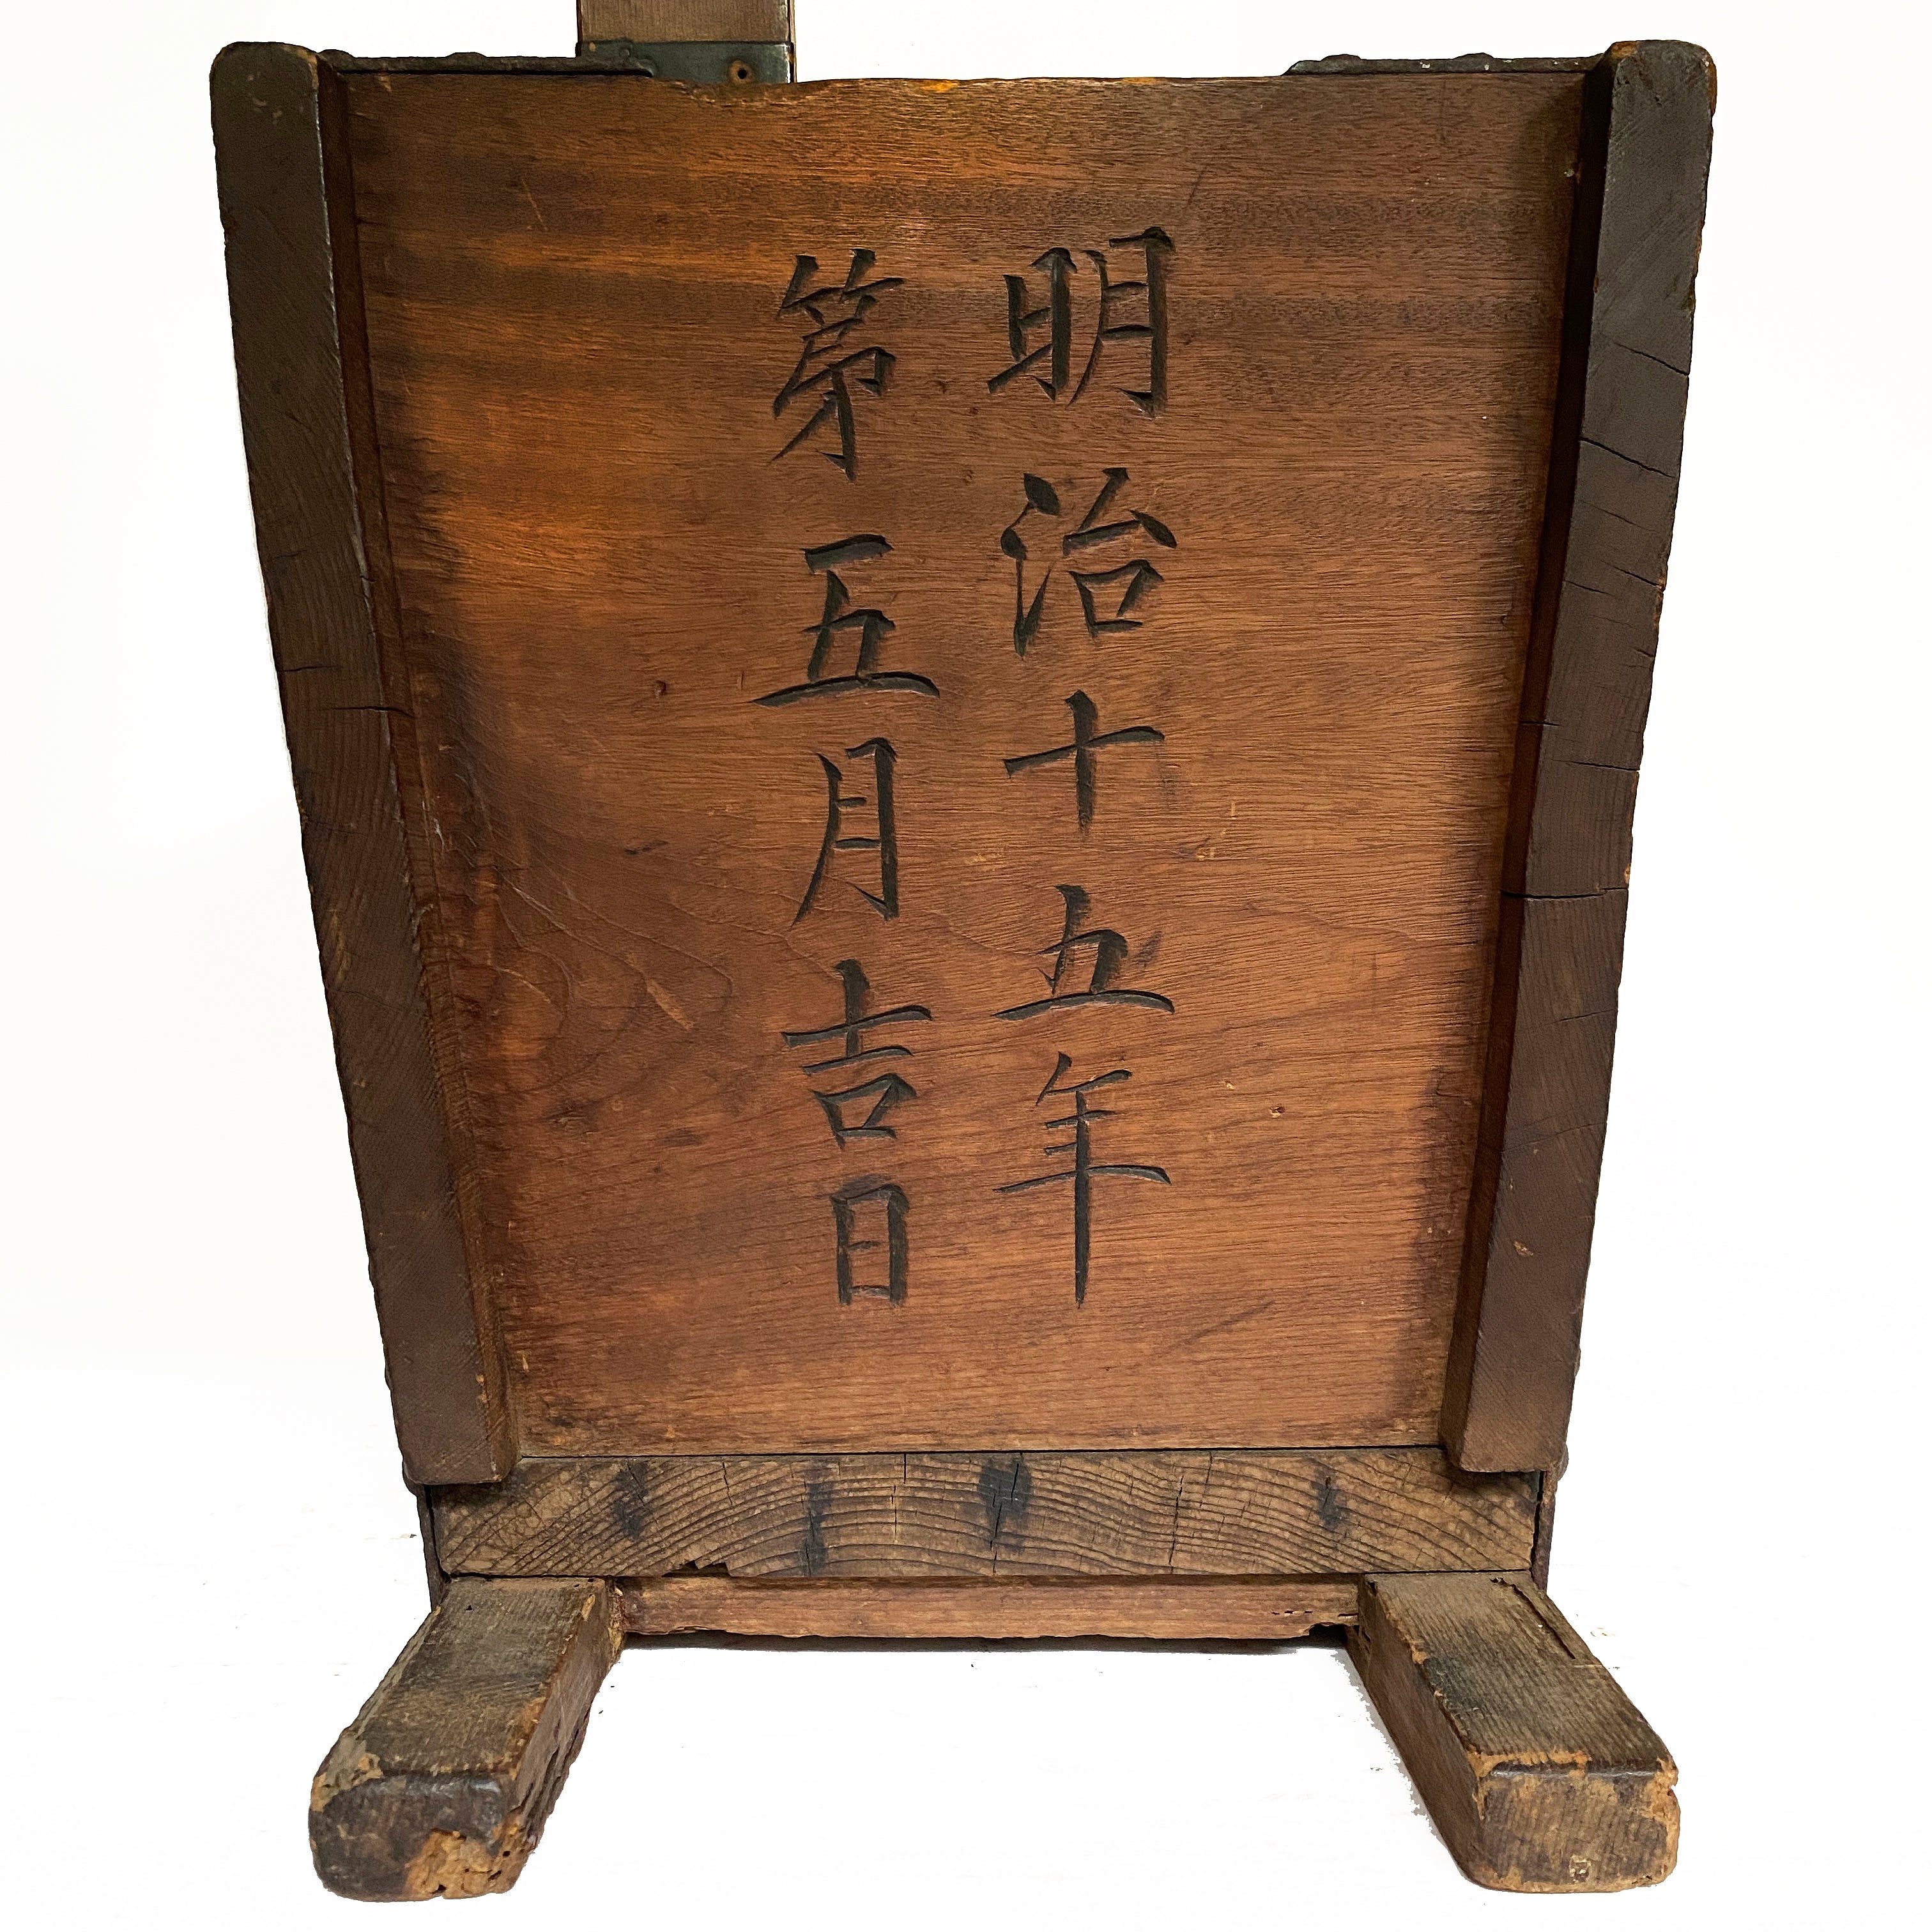 明治十五年
第五月吉日